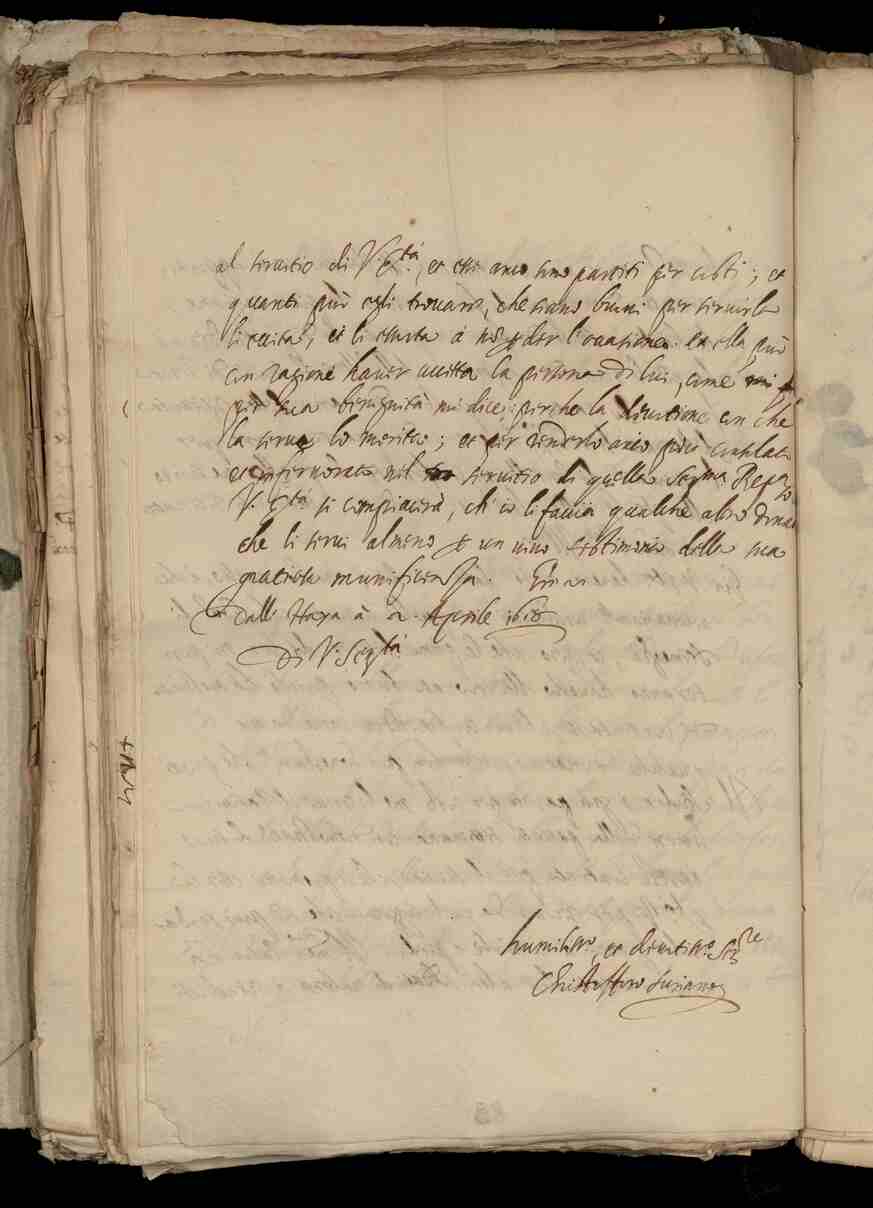 al servitio di V. Ser.tà, et essi anco sono partiti per costì; et
quanti può egli trovare, che siano buoni per servirla
li eccita, et li essorta à non perder l'occasione. et ella può
con ragione haver accetta la persona di lui, come mi
per sua benignità mi dice; perche la divotione con che
la serve lo merita; et per renderlo anco più consolato
et infervorato nel servitio di quella Ser.ma Repca
V. Ser.tà si compiacerà, ch' io li faccia qualche altro dono
che li servi almeno per un vivo testimonio della sua
grata munificenza. Gratie
Dall' Haya à 2 Aprile 1618
Di V. Ser.tà
humiliss.o, et divotiss.o Ser.re
Christofforo Suriano